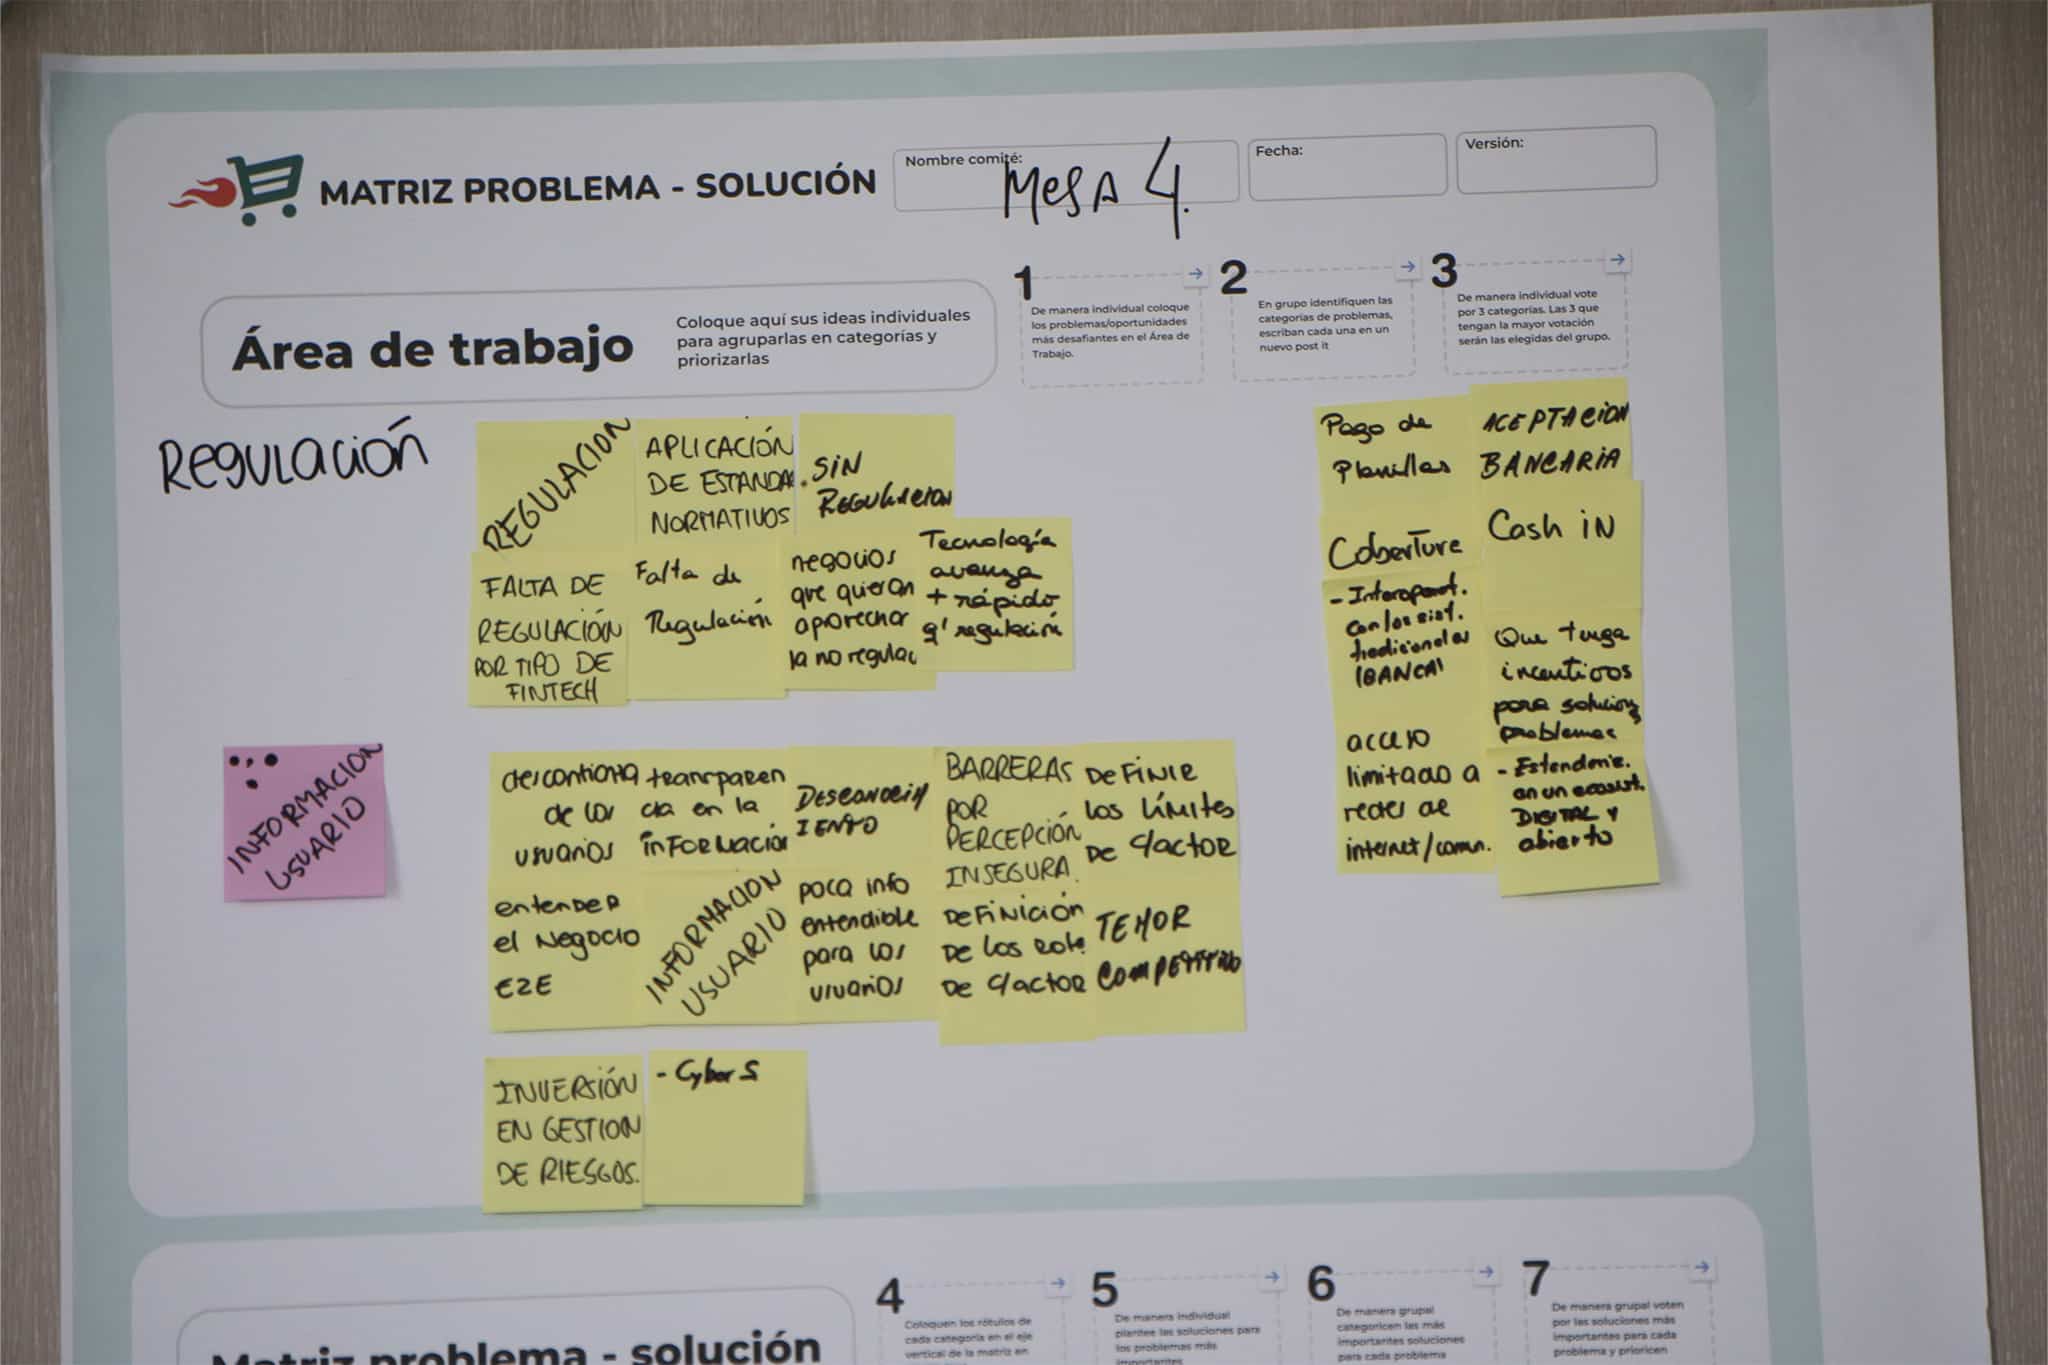 MATRIZ PROBLEMA - SOLUCIÓN
Nombre comité:
MESA 4.
Fecha:
Versión:
Área de trabajo
Coloque aquí sus ideas individuales
para agruparlas en categorías y
priorizarlas
1
De manera individual coloque
los problemas/oportunidades
más desafiantes en el Área de
Trabajo.
2
En grupo identifiquen las
categorías de problemas,
escriban cada una en un
nuevo post it
3
De manera individual vote
por 3 categorías. Las 3 que
tengan la mayor votación
serán las elegidas del grupo.
Regulación
REGULACION
APLICACIÓN
DE ESTANDA
NORMATIVOS
. SIN
REGULACION
FALTA DE
REGULACIÓN
POR TIPO DE
FINTECH
Falta de
Regulación
negocios
que quieran
aprovechar
la no regulac
Tecnología
avanza
+ rápido
q' regulación
Pago de
Planillas
ACEPTACION
BANCARIA
Coberture
Cash iN
- Interoperat.
con los sist.
tradicionales
(BANCA)
Que tenga
incentivos
para solucion
problemas
acceso
limitado a
redes de
internet/comn.
- Estenderie.
en un ecosist.
DIGITAL y
abierto
INFORMACION
USUARIO
desconfianza
de los
usuarios
transparen
cia en la
inFormación
DESCONOCIM
IENTO
BARRERAS
POR
PERCEPCIÓN
INSEGURA.
DeFINIR
los límites
De c/actor
entender
el Negocio
E2E
INFORMACION
USUARIO
poca info
entendible
para los
usuarios
DeFINICIÓN
De los roles
De c/actor
TEMOR
COMPETITIVO
INVERSIÓN
EN GESTION
DE RIESGOS.
- Cyber S
Matriz problema - solución
4
Coloquen los rótulos de
cada categoría en el eje
vertical de la matriz en
5
De manera individual
plantee las soluciones para
los problemas más
importantes
6
De manera grupal
categoricen las más
importantes soluciones
para cada problema
7
De manera grupal voten
por las soluciones más
importantes para cada
problema y prioricen